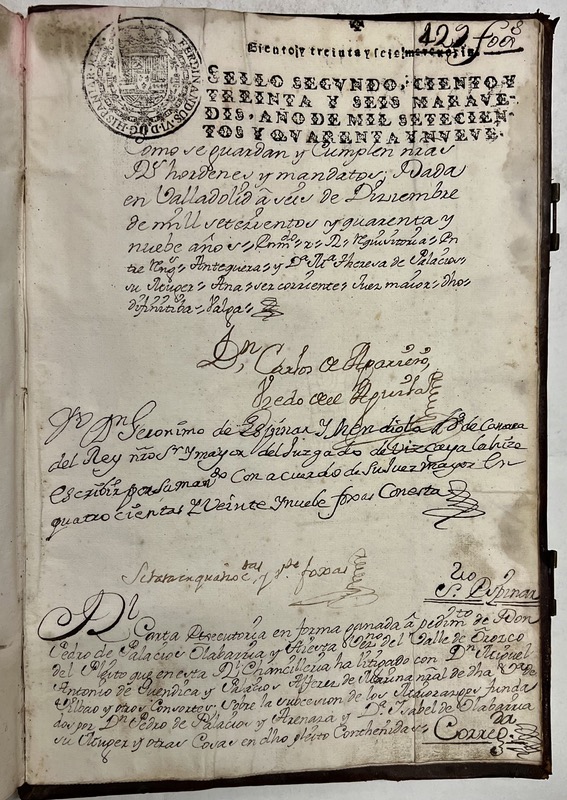 429 foxs
Cientoy treinta y seis maravedis.
FERDINANDUS VI D G HISPANIAR REX
SELLO SEGVNDO, CIENTO Y
TREINTA Y SEIS MARAVE-
DIS, AÑO DE MIL SETECIEN-
TOS Y QVARENTA Y NVEVE.
Como se guardan y Cumplen nras
Rs hordenes y mandatos, Dada
en Valladolid â seis de Diziembre
de mill setezientos y quarenta y
nuebe años
tre Antequera y Da Ma Theresa de Palacios
su Muger Ana ser corriente Juez maior dho
difinitiba Valga
Dn Carlos de
Yo Dn Geronimo de Espinar y Mendiola sno de Camara
del Rey nro Sr y mayor del Juzgado de vizcaya la hize
escribir por su mando Con acuerdo de su Juez mayor En
quatrocientas y Veinte y nuebe foxas Con esta
foxas
Sno Espinar
Rl Carta executoria en forma ganada â pedimto de Don
Pedro de Palacios Olabarria y Vezno del Valle de Orozco
del Pleyto que en esta Rl Chancilleria ha litigado con Dn Miguel
Antonio de Guendica y Palacios Alferez de Marina nral de dha Va de
Bilbao y otros Consortes, Sobre la subcesion de los Maiorazgos funda
dos por Dn Pedro de Palacios y Arenaza y Da Isabel de Olabarria
su Muger y otras Cosas en dho pleyto Conthenidas
Correoda